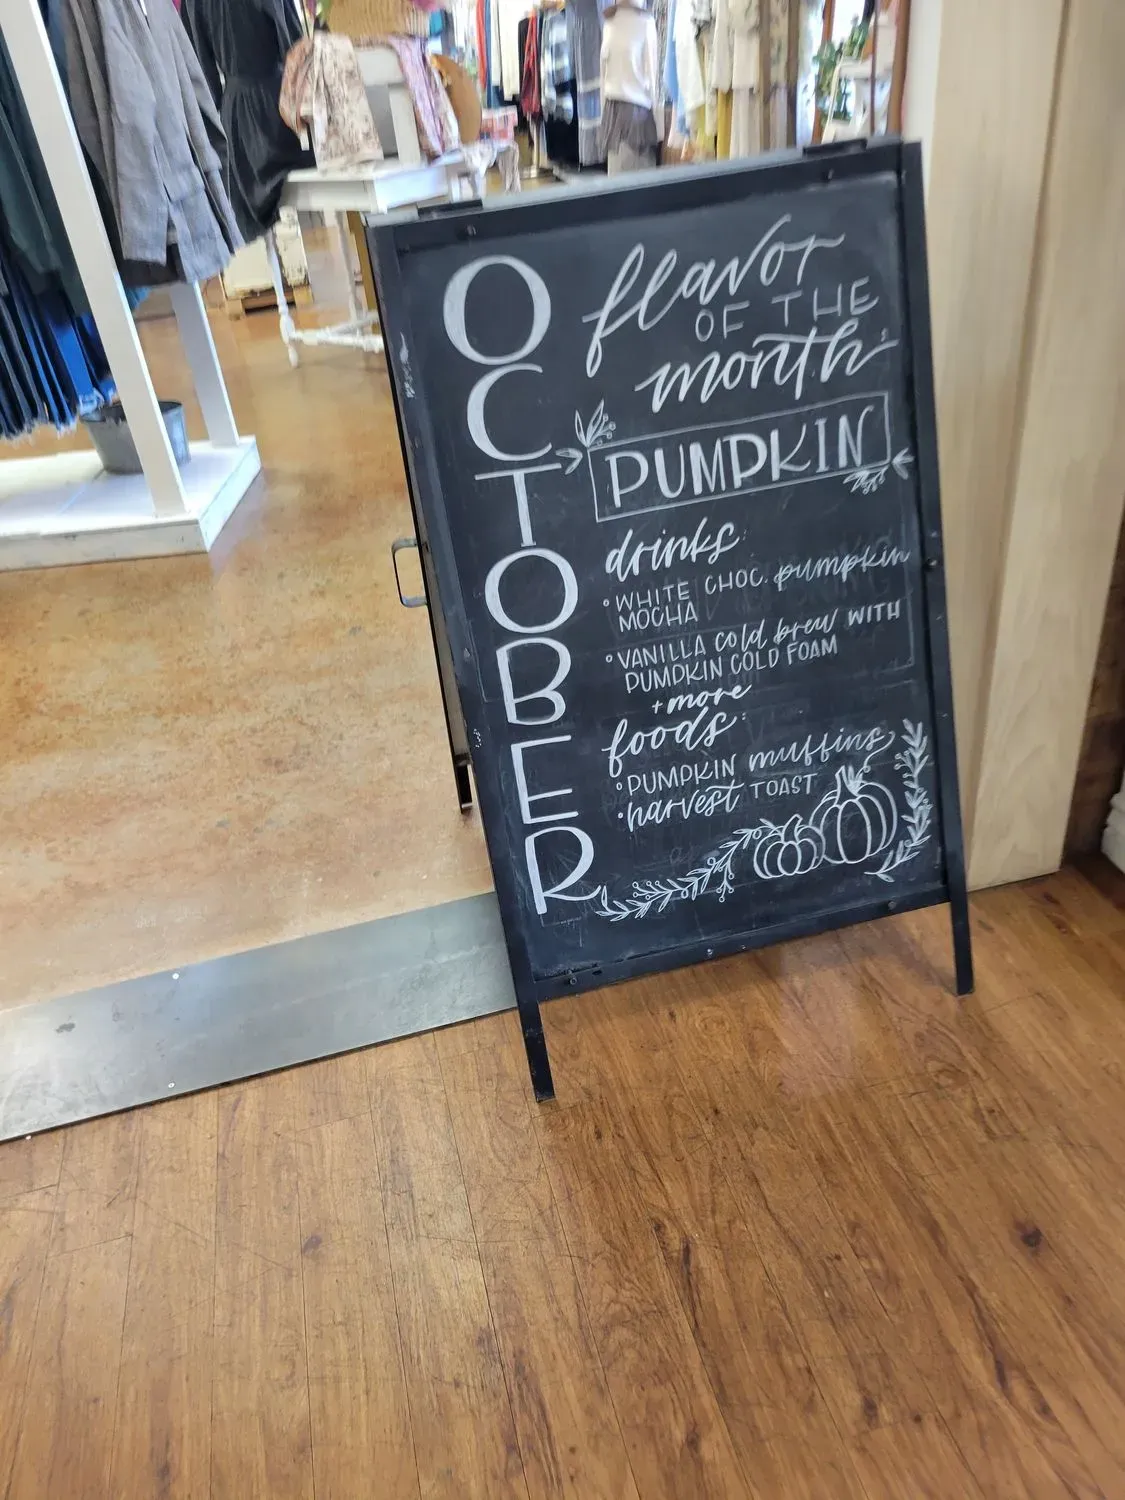 OCTOBER
flavor
OF THE
month:
PUMPKIN
drinks:
• WHITE CHOC. pumpkin
MOCHA
• VANILLA cold brew WITH
PUMPKIN COLD FOAM
+more
foods:
• PUMPKIN muffins
• harvest TOAST